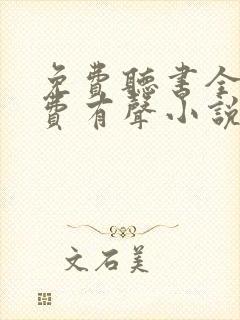 免費聽書全
費有聲小說
文石美